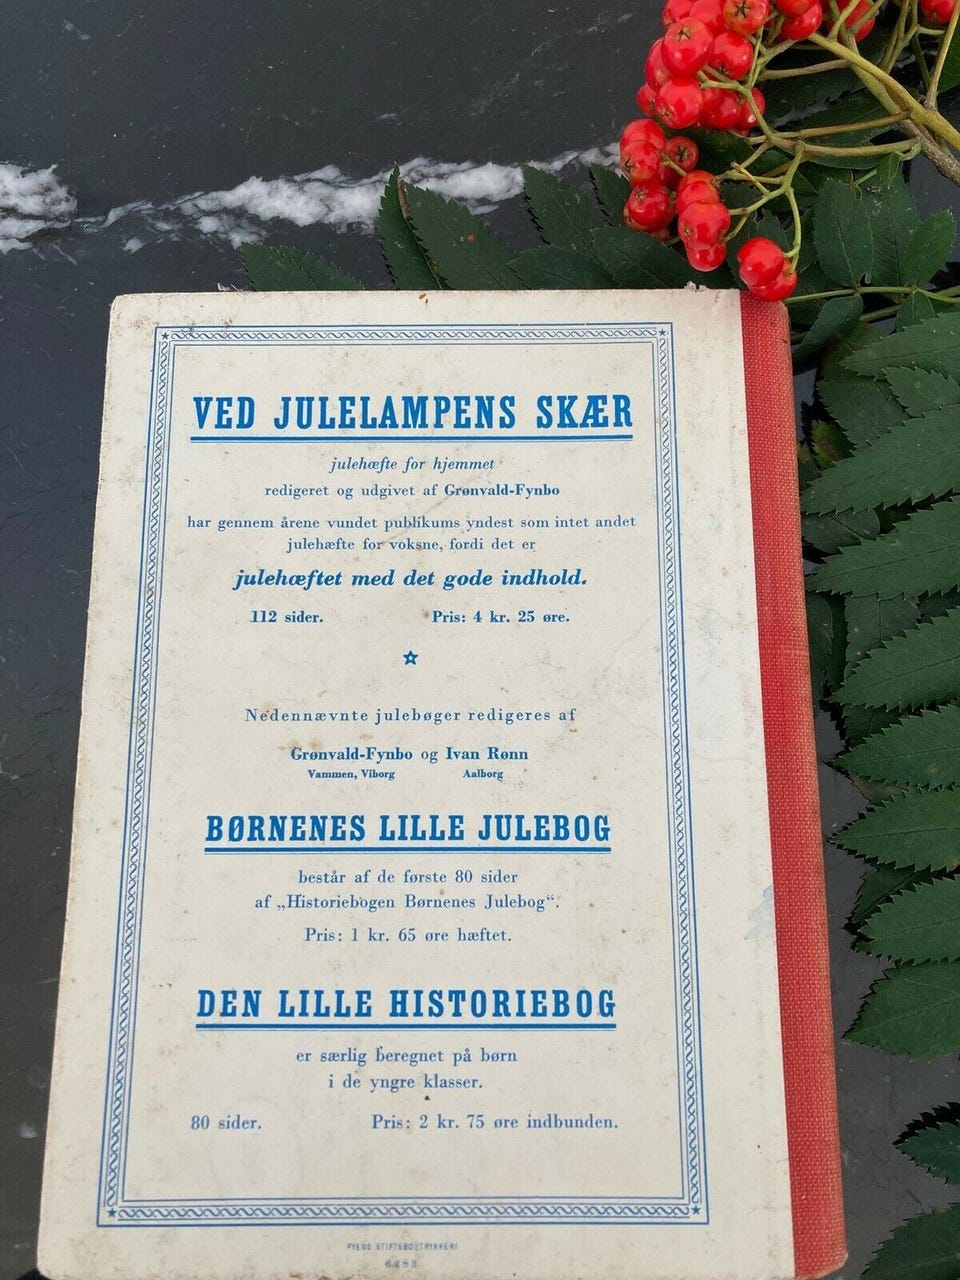 VED JULELAMPENS SKÆR
julehæfte for hjemmet
redigeret og udgivet af Grønvald-Fynbo
har gennem årene vundet publikums yndest som intet andet
julehæfte for voksne, fordi det er
julehæftet med det gode indhold.
112 sider. Pris: 4 kr. 25 øre.
Nedennævnte julebøger redigeres af
Grønvald-Fynbo og Ivan Rønn
Vammen, Viborg Aalborg
BØRNENES LILLE JULEBOG
består af de første 80 sider
af „Historiebogen Børnenes Julebog“.
Pris: 1 kr. 65 øre hæftet.
DEN LILLE HISTORIEBOG
er særlig beregnet på børn
i de yngre klasser.
80 sider. Pris: 2 kr. 75 øre indbunden.
FYENS STIFTSBOGTRYKKERI